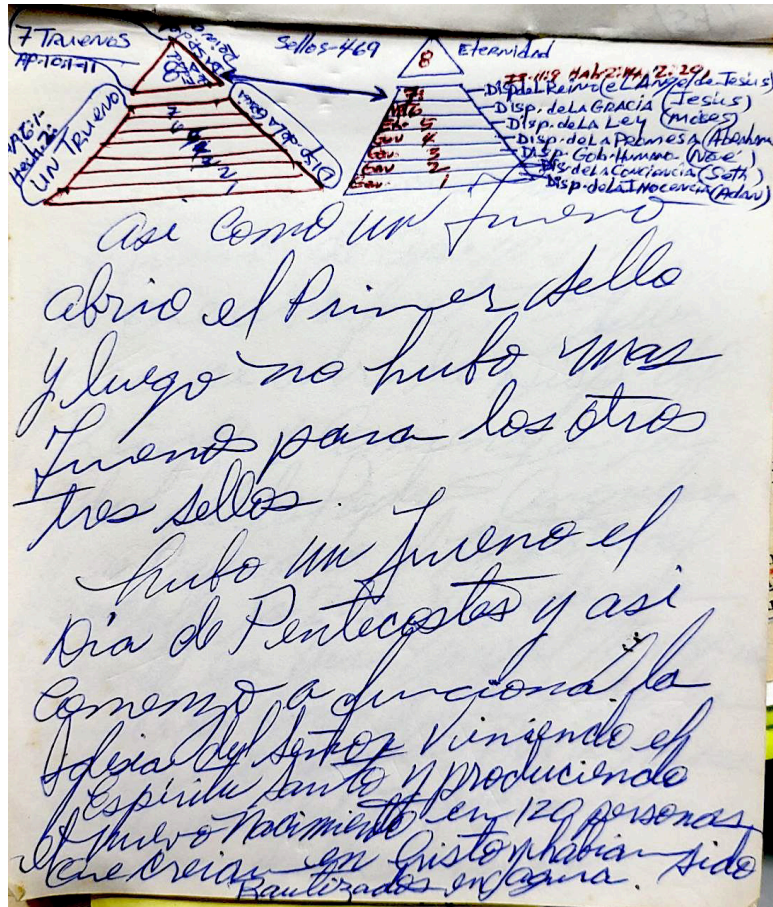 7 TRUENOS
AP-10:1-11
UN TRUENO
Disp. de la Gracia
Sellos-469
8
Eternidad
Disp. del Reino (el Angel de Jesús)
Disp. de LA GRACIA (Jesús)
Disp. de LA Ley (Moises)
Disp. de LA Promesa (Abraham)
Disp. Gob. Humano (Noé)
Dis. de la Conciencia (Seth)
Disp. de LA INocencia (Adan)
7
6
5
4
3
2
1
asi como un trueno
abrio el Primer sello
y luego no hubo mas
truenos para los otros
tres sellos.
hubo un trueno el
Dia de Pentecostes y asi
comenzo a funciona la
Iglesia del Señor viniendo el
Espiritu Santo y produciendo
el nuevo Nacimiento en 120 personas
que creian en Cristo y habian sido
Bautizados en agua.